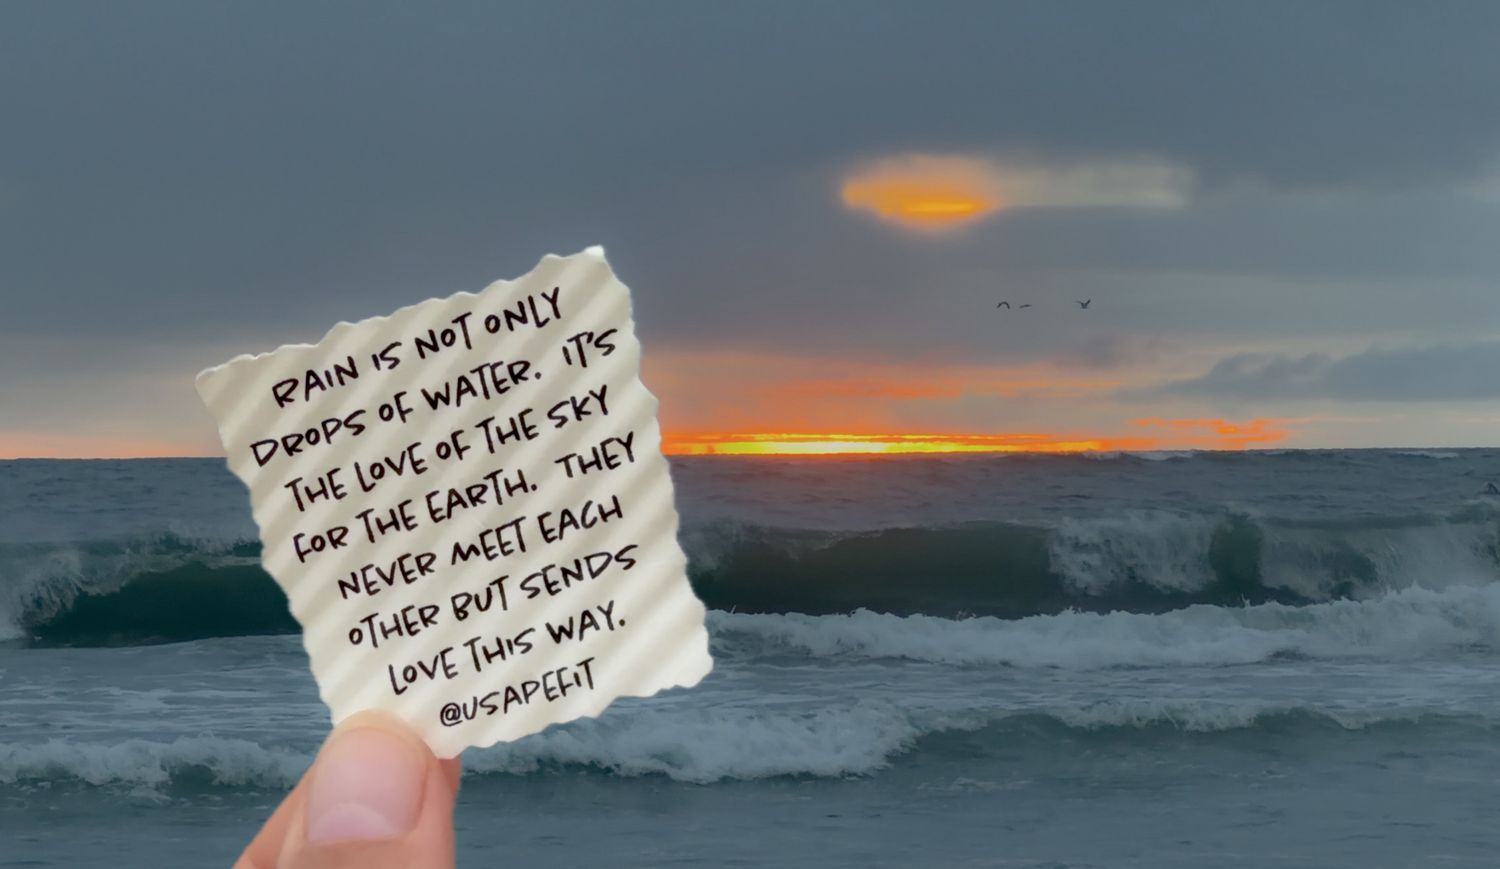 RAIN IS NOT ONLY
DROPS OF WATER. IT'S
THE LOVE OF THE SKY
FOR THE EARTH. THEY
NEVER MEET EACH
OTHER BUT SENDS
LOVE THIS WAY.
@USAPEFIT